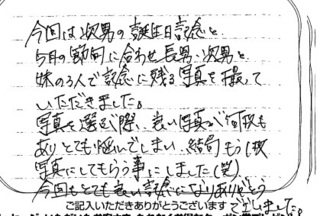 今回は次男の誕生日記念と
5月の節句に合わせ長男、次男と
妹の3人で記念に残る写真を撮って
いただきました。
写真を選ぶ際、良い写真が何枚も
ありとても悩んでしまい、結局もう1枚
写真にしてもらう事にしました(笑)
今回もとても良い記念になりありがとう
ご記入いただきありがとうございます
でざいました。